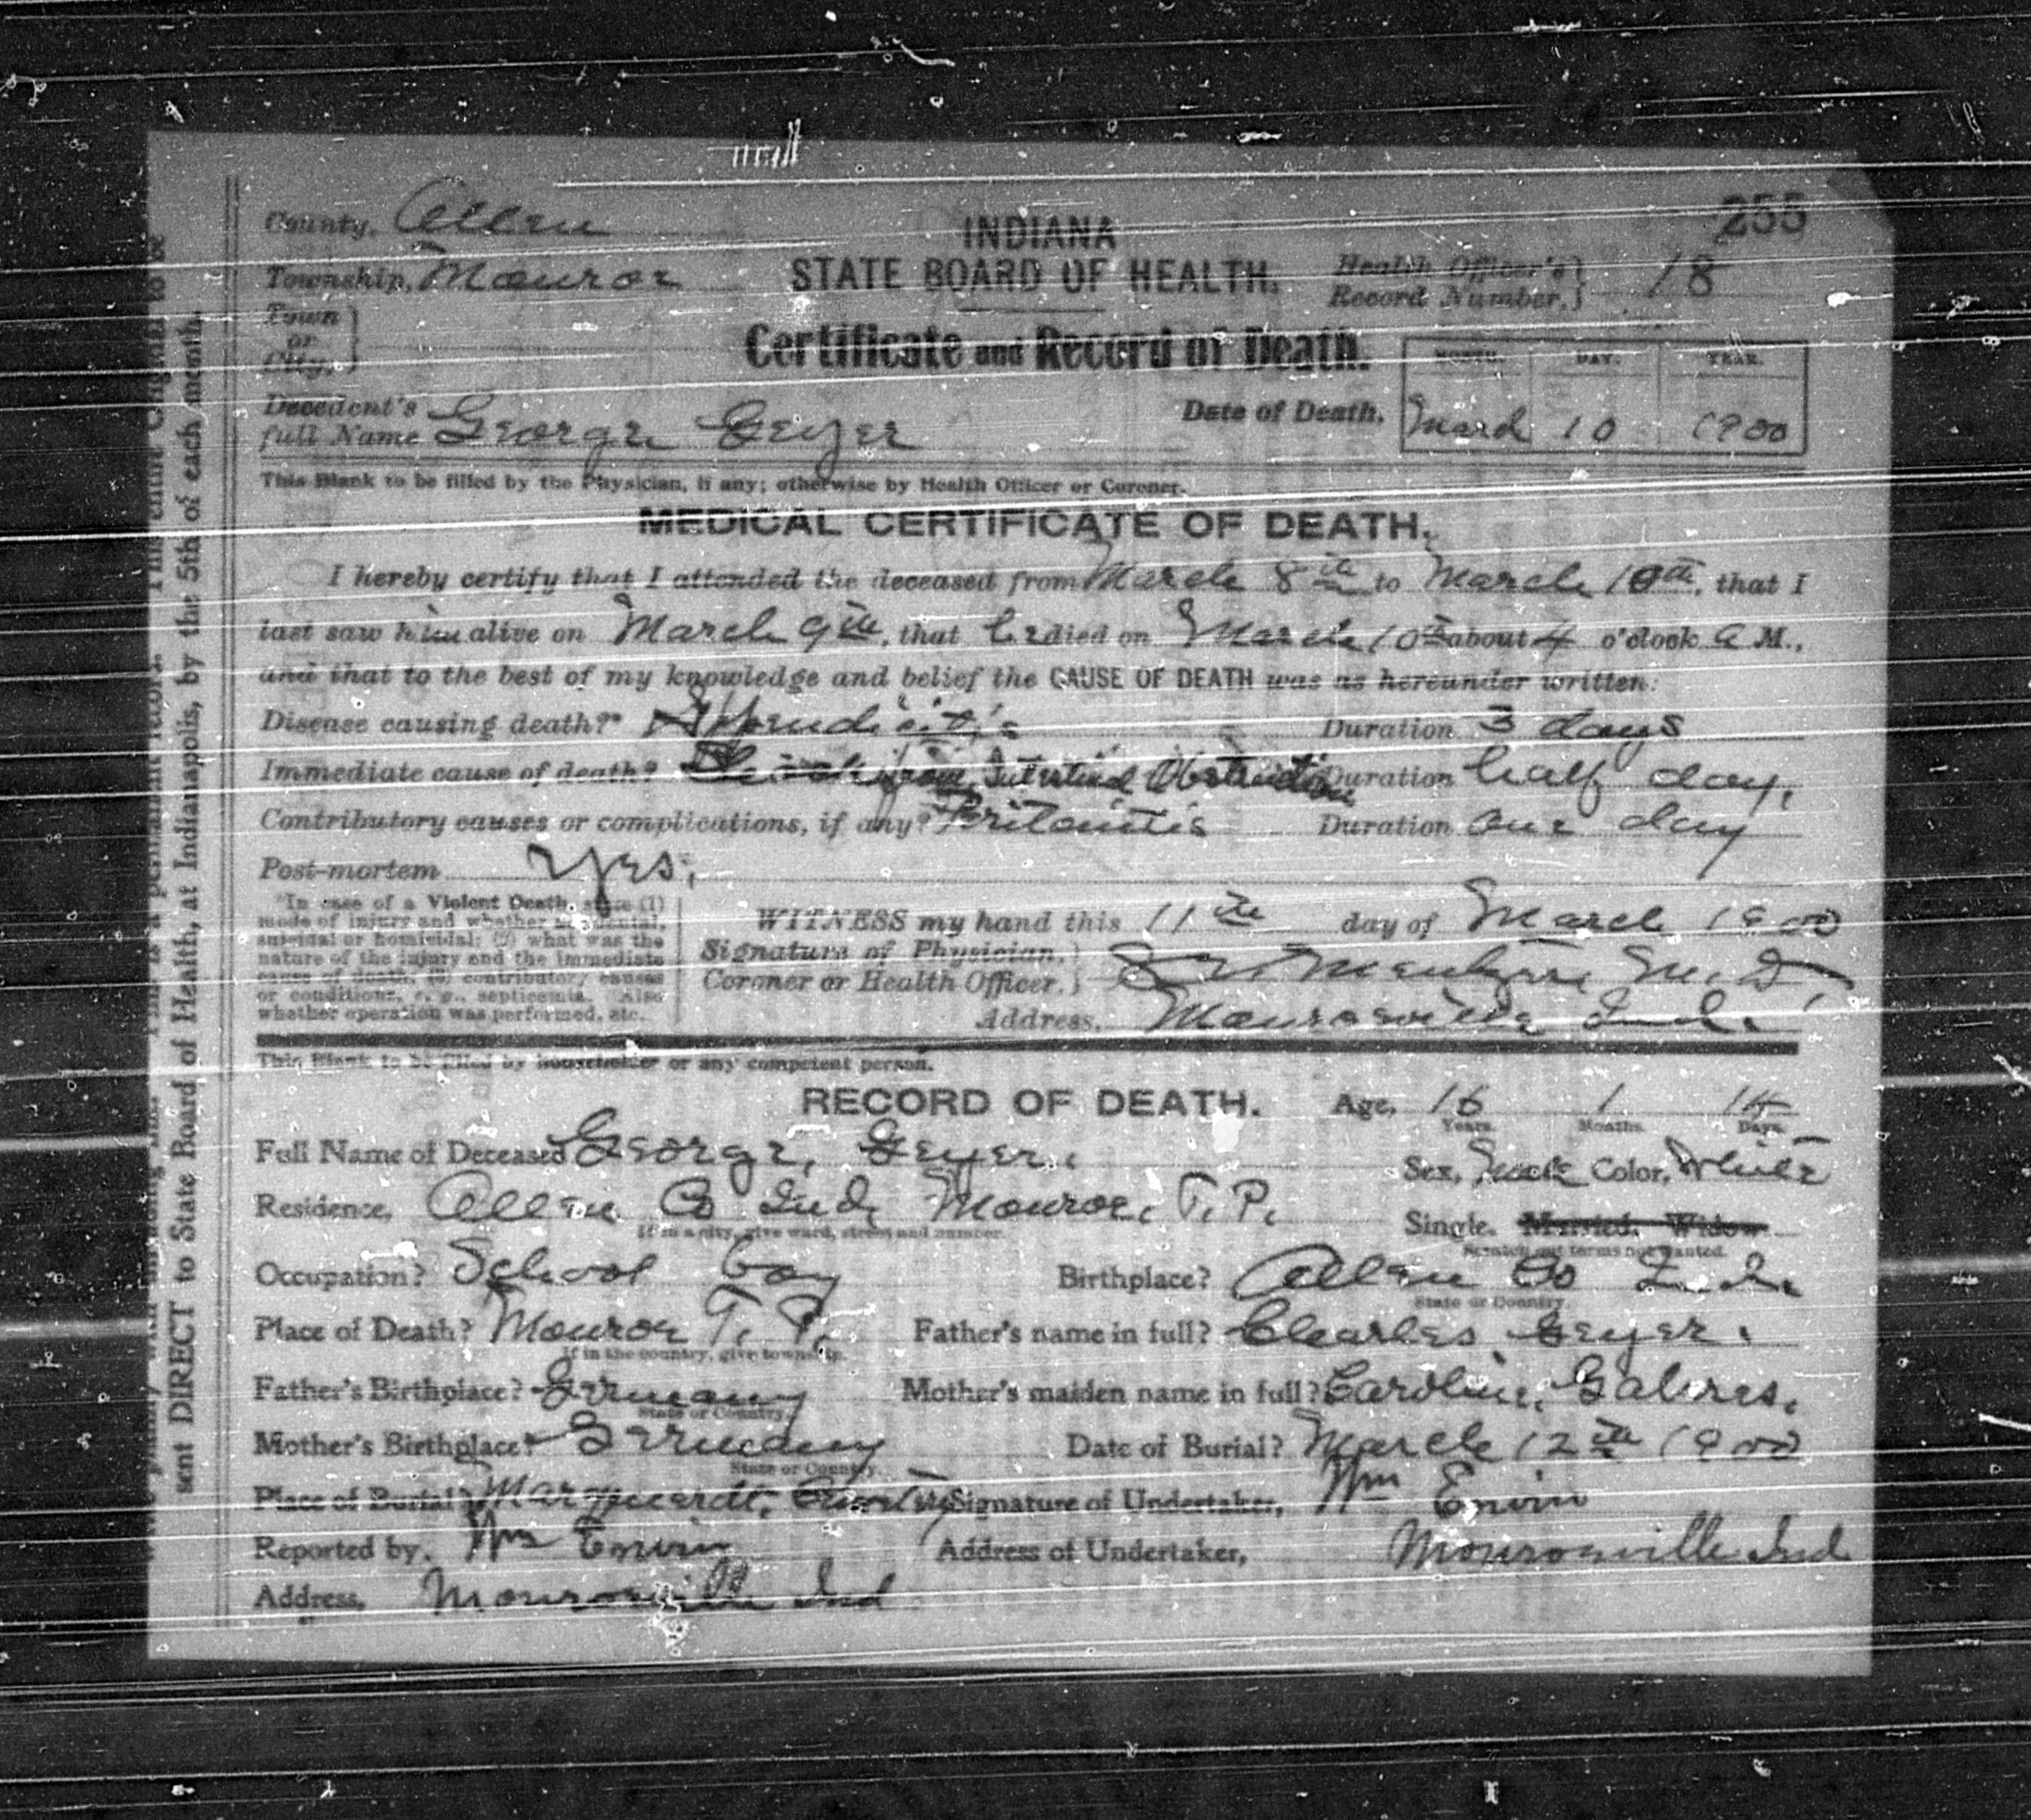 255
County, Allen
INDIANA
Township, Monroe
STATE BOARD OF HEALTH.
Health Officer's Record Number, 18
Town or City,
Certificate and Record of Death.
MONTH. DAY. YEAR.
Decedent's full Name George Geyer
Date of Death, March 10 1900
This Blank to be filled by the Physician, if any; otherwise by Health Officer or Coroner.
MEDICAL CERTIFICATE OF DEATH.
I hereby certify that I attended the deceased from March 8th to March 10th, that I
last saw him alive on March 9th, that he died on March 10th about 4 o'clock a M.,
and that to the best of my knowledge and belief the CAUSE OF DEATH was as hereunder written:
Disease causing death?* Appendicitis Duration 3 days
Immediate cause of death? from Intestinal Obstruction Duration half day,
Contributory causes or complications, if any? Peritonitis Duration one day
Post-mortem Yes.
*In case of a Violent Death, state (1)
mode of injury and whether accidental,
suicidal or homicidal; (2) what was the
nature of the injury and the immediate
cause of death, (3) contributory causes
or conditions, e. g., septicemia. Also
whether operation was performed, etc.
WITNESS my hand this 11th day of March 1900
Signature of Physician, Coroner or Health Officer, M. D,
Address, Monroeville Ind.
This Blank to be filled by householder or any competent person.
RECORD OF DEATH. Age, 16 1 14
Years. Months. Days.
Full Name of Deceased George, Geyer.
Sex, Male Color, White
Residence, Allen Co Ind, Monroe, T. P.
If in a city, give ward, street and number.
Single. Married. Widow
Scratch out terms not wanted.
Occupation? School boy Birthplace? Allen Co Ind.
State or Country.
Place of Death? Monroe T. P. Father's name in full? Charles Geyer.
If in the country, give township.
Father's Birthplace? Germany Mother's maiden name in full? Caroline,
State or Country.
Mother's Birthplace? Germany Date of Burial? March 12th 1900
State or Country.
Place of Burial? Marquardt, Cemetery Signature of Undertaker, Wm Ervin
Reported by, Wm Ervin Address of Undertaker, Monroeville Ind
Address, Monroeville Ind
sent DIRECT to State Board of Health, at Indianapolis, by the 5th of each month.